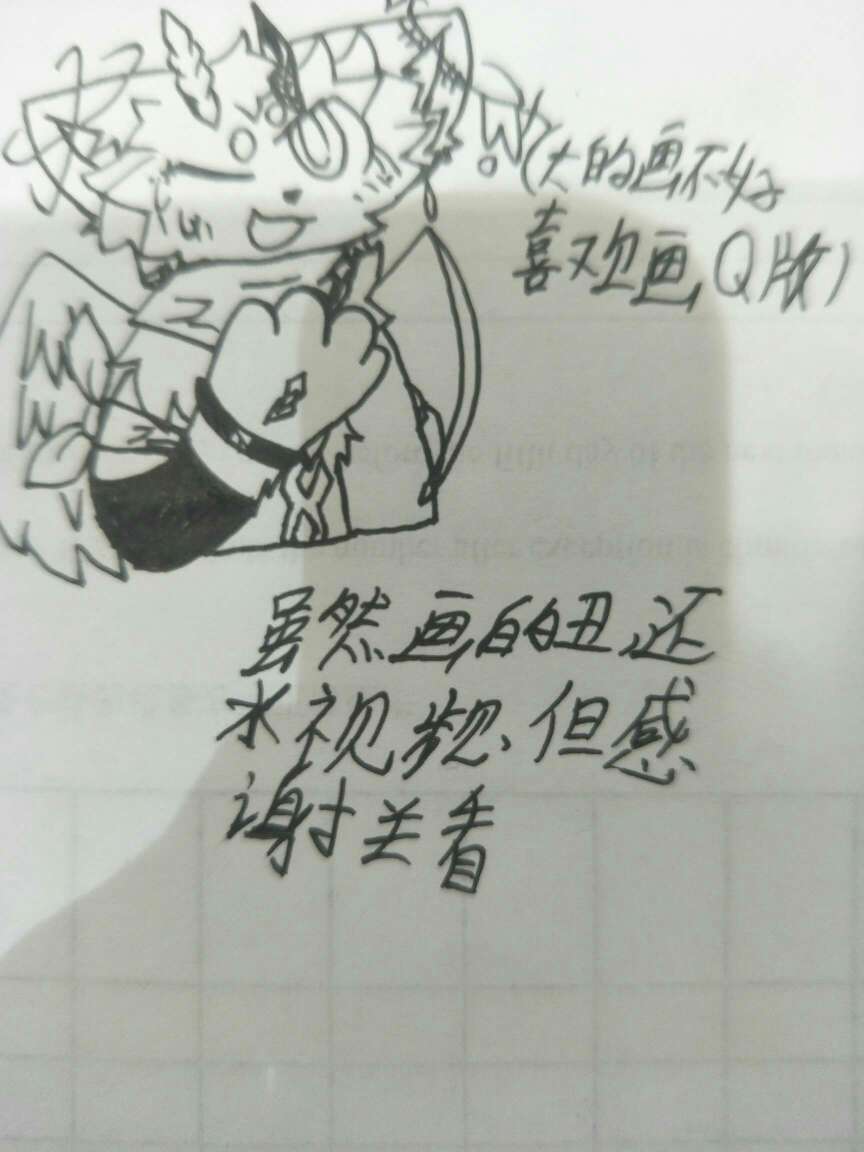 (大的画不好
喜欢画Q版)
虽然画的丑还
水视频、但感
谢关看